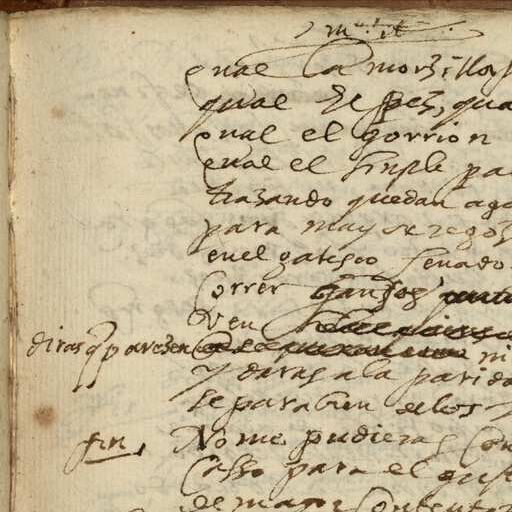 qual la morzilla
qual el pez, qua
qual el gorrion
qual el simple pa
trazando quedan ago
para mayor regoz
en el gatesco senado
Correr gansos
Ven
diras q parezen ni
y daras a la parida
el parabien de los
fin, No me pudieras Con
Casso para el gust
de mayor Contento